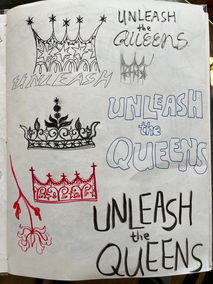 UNLEASH
the
Queens
UNLEASH
UNLEASH
the
QUEENS
UNLEASH
the
QUEENS